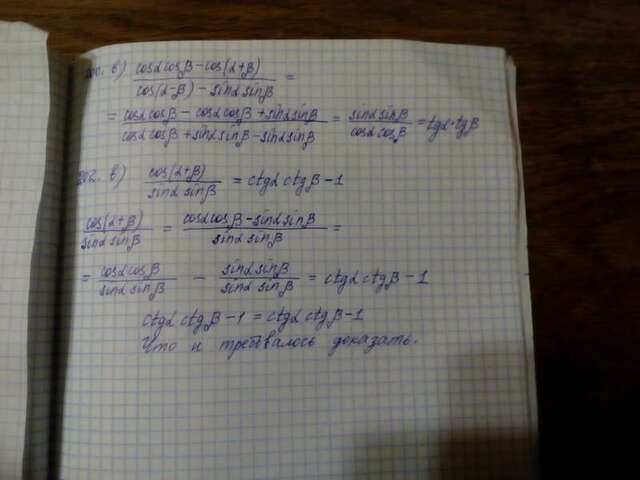 200. в) cosα cosβ − cos(α+β) / cos(α−β) − sinα sinβ =
= cosα cosβ − cosα cosβ + sinα sinβ / cosα cosβ + sinα sinβ − sinα sinβ = sinα sinβ / cosα cosβ = tgα·tgβ
202. в) cos(α+β) / sinα sinβ = ctgα ctgβ − 1
cos(α+β) / sinα sinβ = cosα cosβ − sinα sinβ / sinα sinβ =
= cosα cosβ / sinα sinβ − sinα sinβ / sinα sinβ = ctgα ctgβ − 1
ctgα ctgβ − 1 = ctgα ctgβ − 1
Что и требовалось доказать.